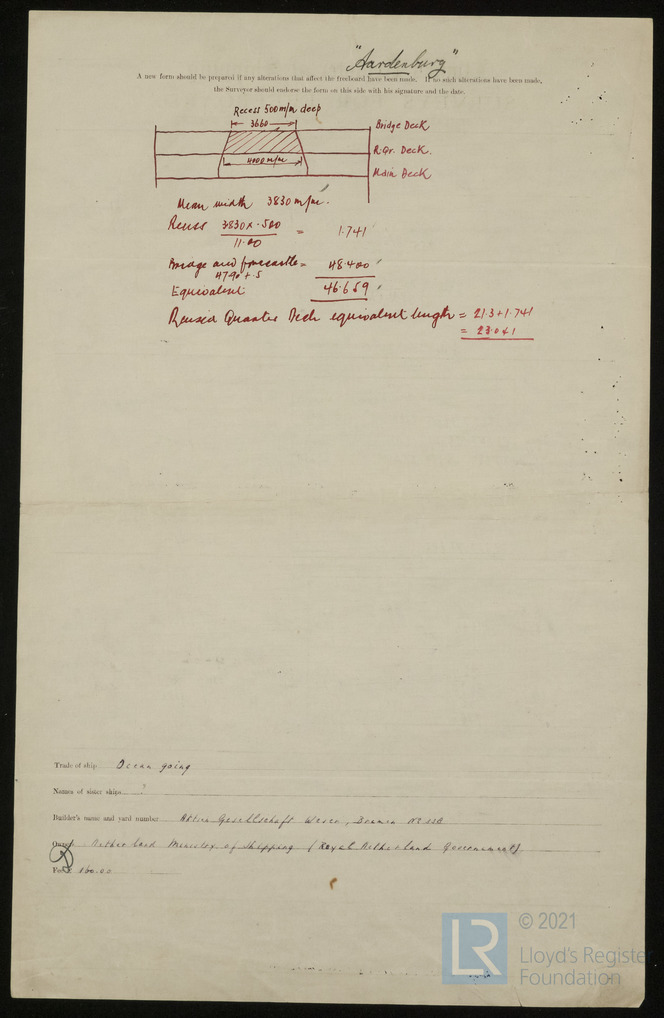 "Aardenburg"
A new form should be prepared if any alterations that affect the freeboard have been made. If no such alterations have been made,
the Surveyor should endorse the form on this side with his signature and the date.
Recess 500 m/m deep
3660
Bridge Deck
R. Qr. Deck.
4000 m/m
Main Deck
Mean width 3830 m/m.
Recess 3830 x .500 = 1.741
11.00
Bridge and forecastle = 48.400
47.90 + .5
Equivalent 46.659
Raised Quarter Deck equivalent length = 21.3 + 1.741
= 23.041
Trade of ship Ocean going
Names of sister ships ?
Builder's name and yard number Aktien Gesellschaft Weser, Bremen No
Owner Netherland Minister of Shipping (Royal Netherland Government)
Fee £ 160.00
LR
© 2021
Lloyd's Register
Foundation